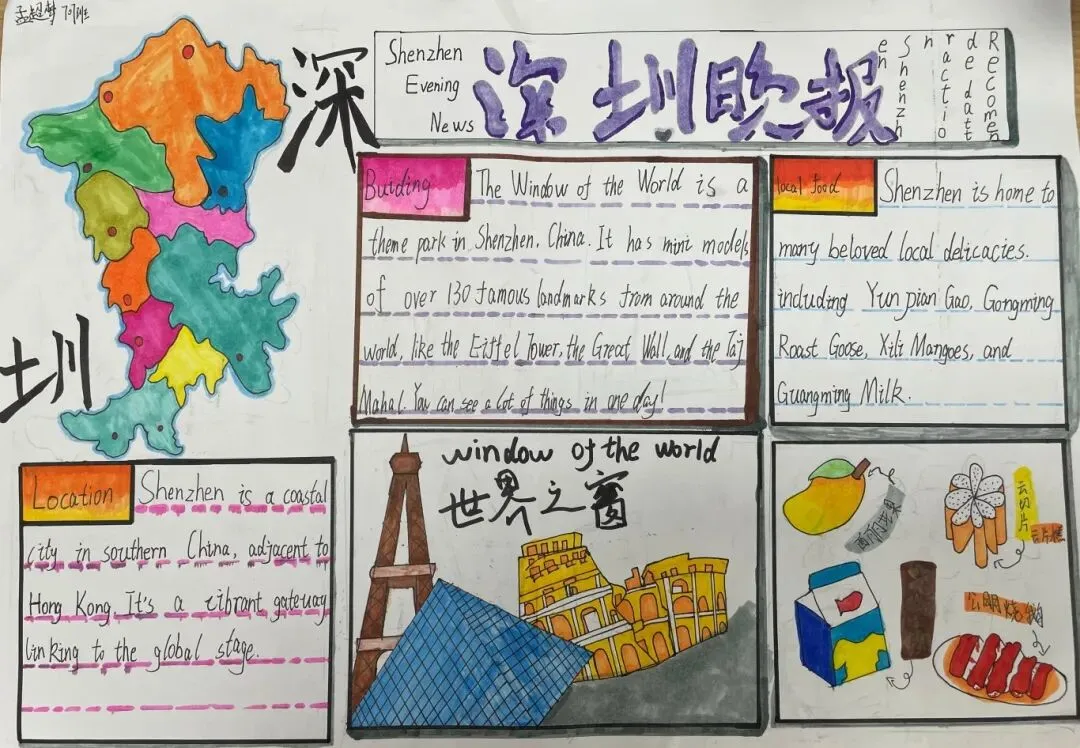 707班
深
圳
Shenzhen
Evening
News
深圳晚报
Recomen
de datt
ractio
n
Shenzh
en
Buiding
The Window of the World is a
theme park in Shenzhen, China. It has mini models
of over 130 famous landmarks from around the
world, like the Eiffel Tower, the Great Wall, and the Taj
Mahal. You can see a lot of things in one day!
local food
Shenzhen is home to
many beloved local delicacies.
including Yun pian Gao, Gongming
Roast Goose, Xili Mangoes, and
Guangming Milk.
Location
Shenzhen is a coastal
city in southern China, adjacent to
Hong Kong. It's a vibrant gateway
linking to the global stage.
window of the world
世界之窗
云切片
云片糕
公明烧鹅